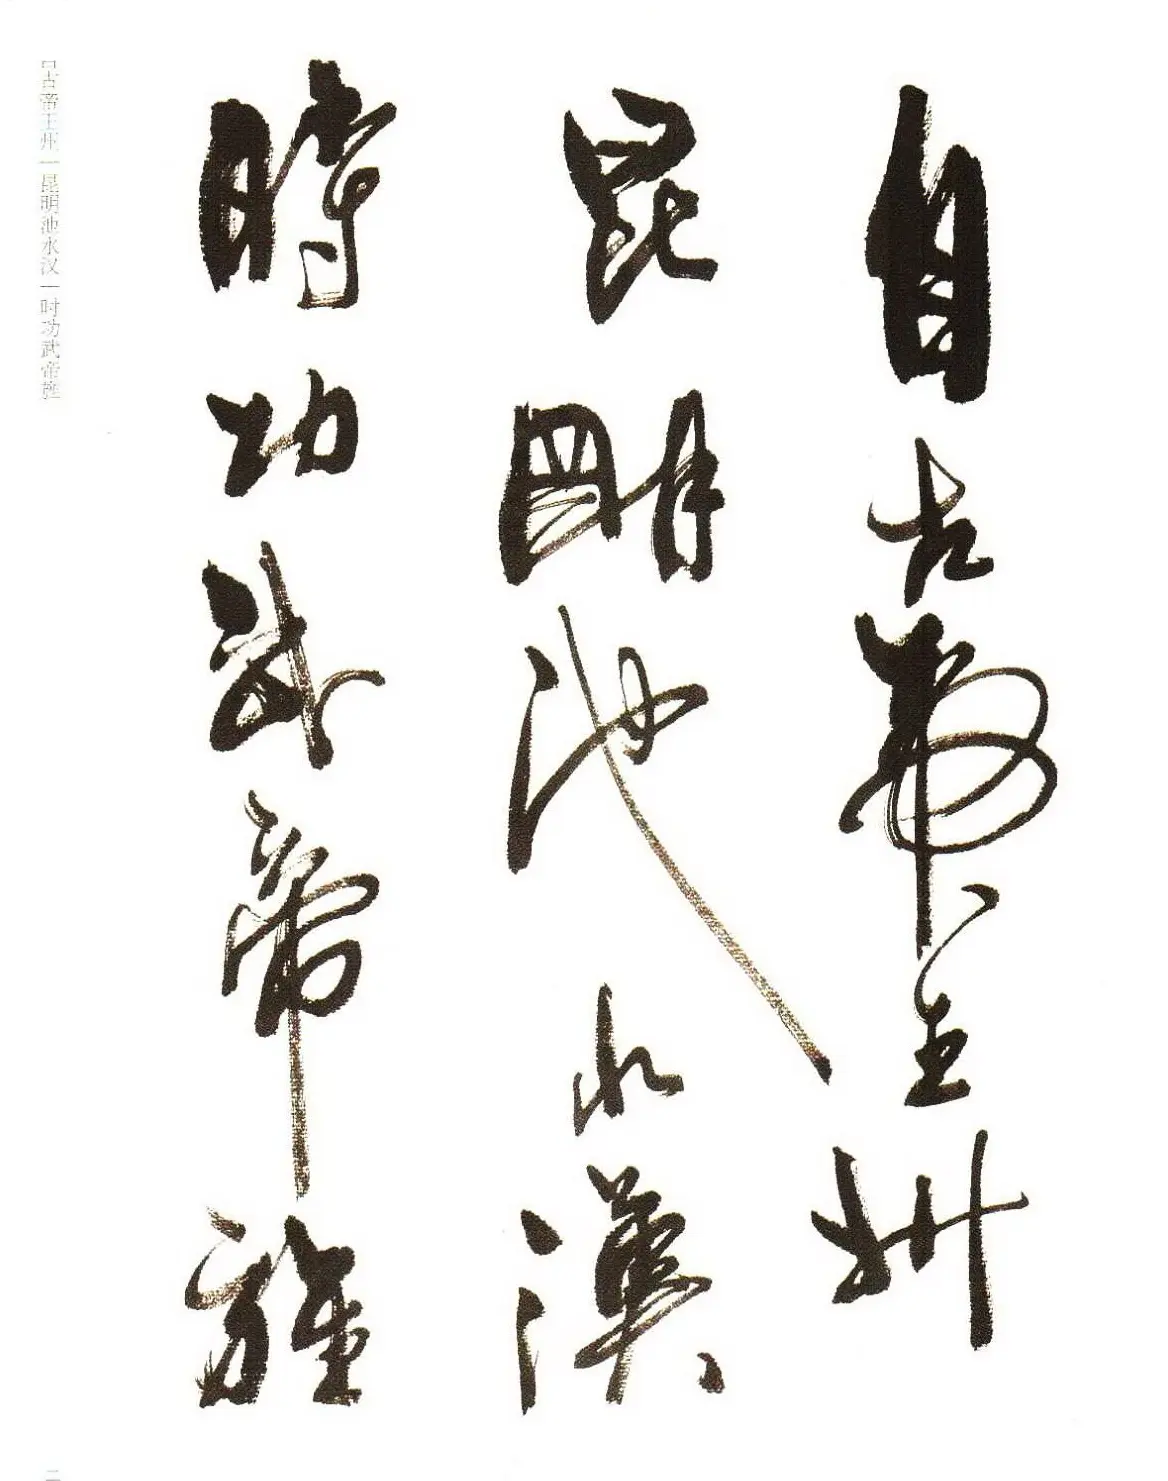 自古帝王州
昆明池水漢
時功武帝旌
古帝王州|昆明池水汉|时功武帝旌
二